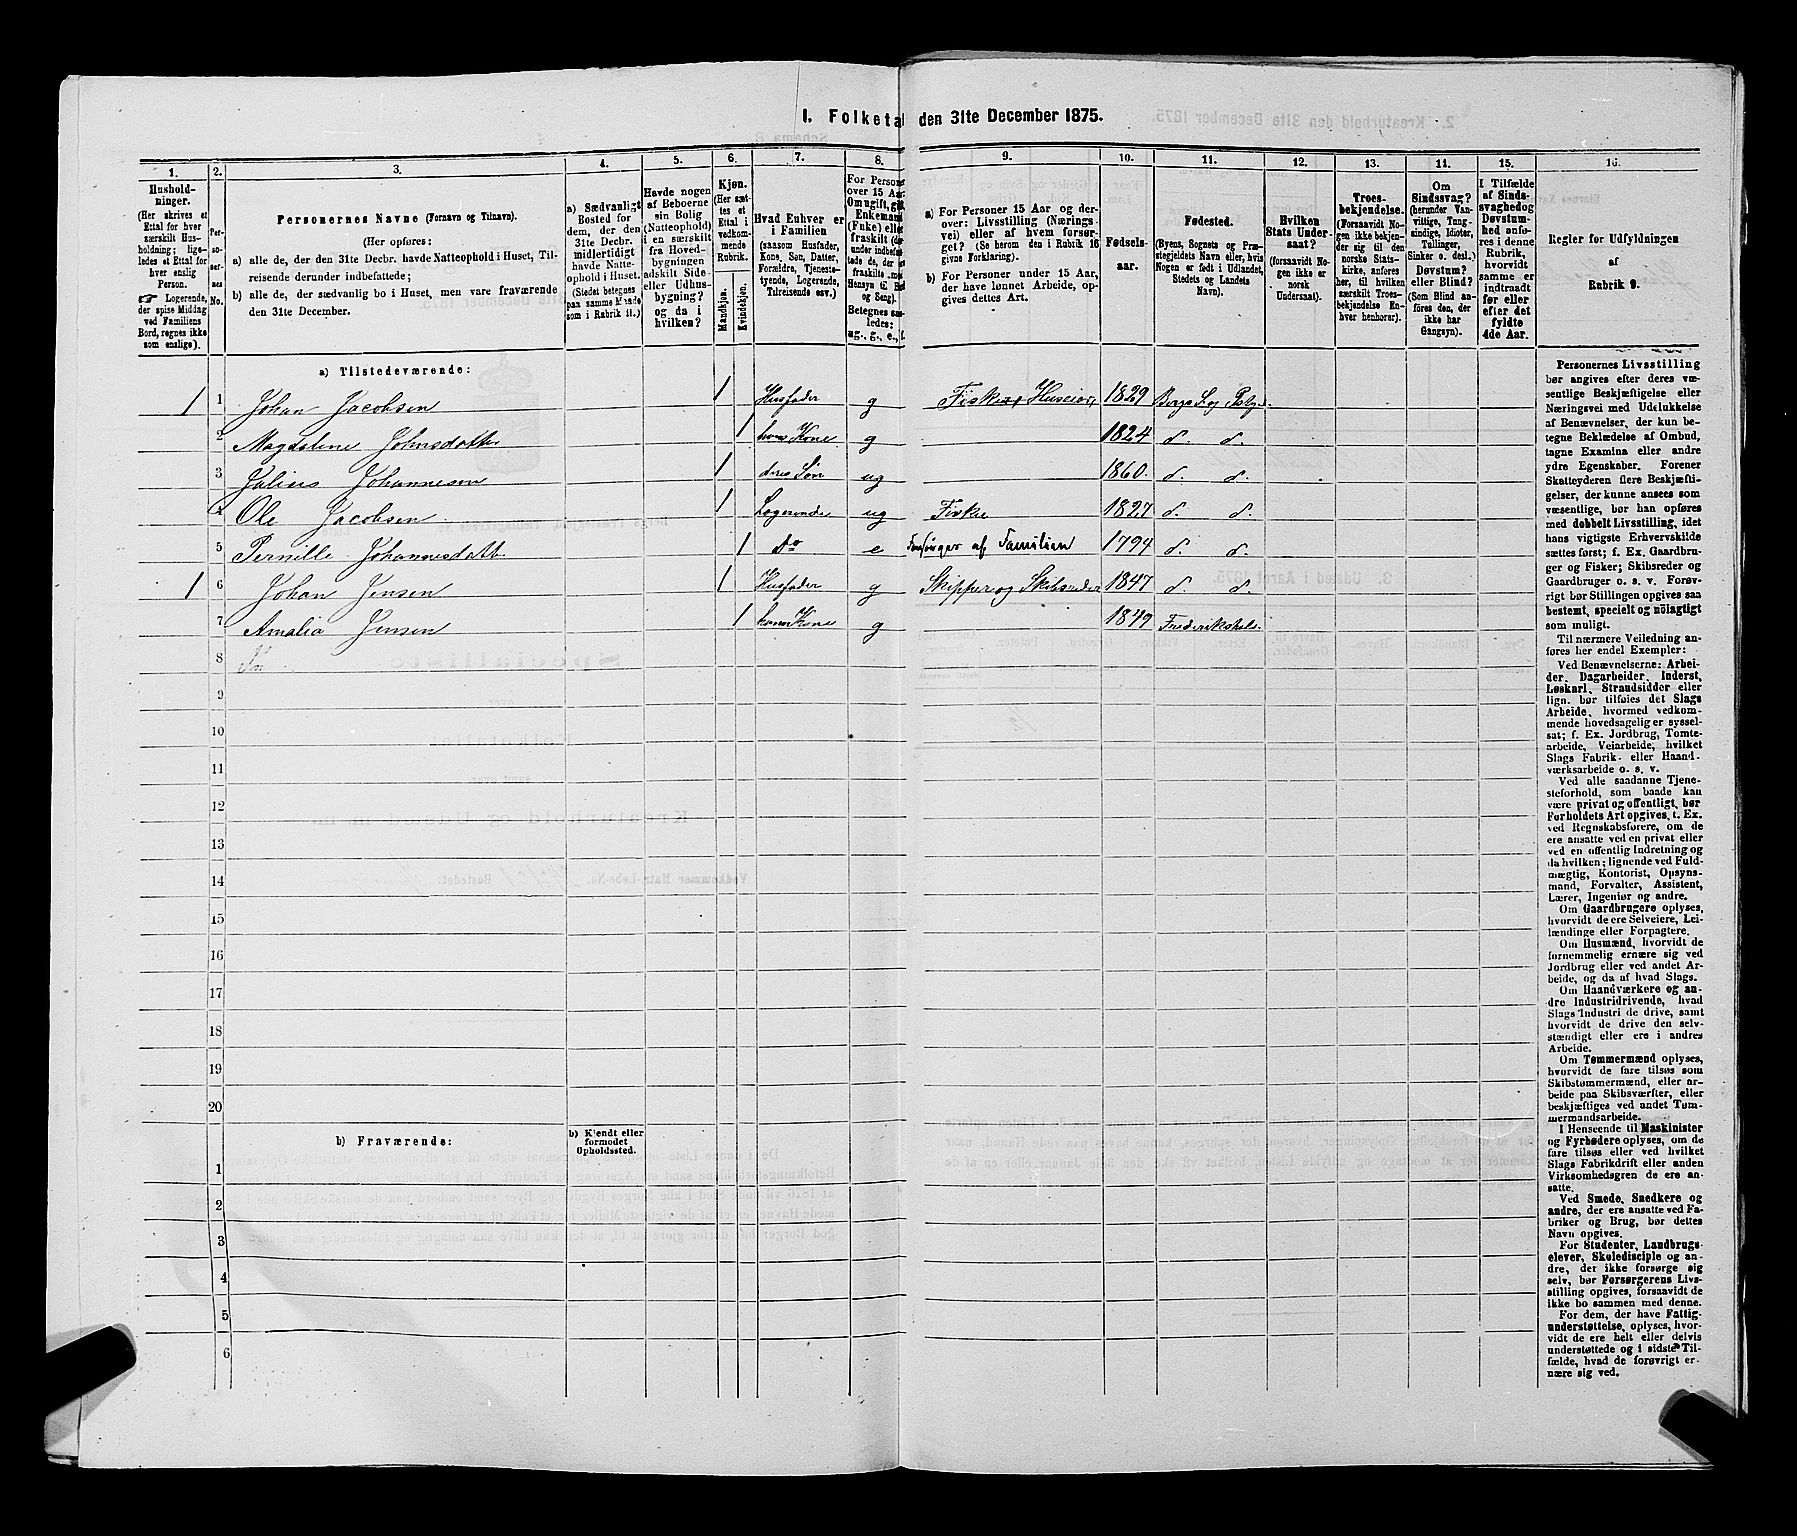 1. Folketal den 31te December 1875.
1. 2. 3. 4. 5. 6. 7. 8. 9. 10. 11. 12. 13. 14. 15. 16.
Hushold-
ninger.
(Her skrives et
Ettal for hver
særskilt Hus-
holdning; lige-
ledes et Ettal for
hver enslig
Person.
☞ Logerende,
der spise Middag
ved Familiens
Bord, regnes ikke
som enslige).
Personernes Navne (Fornavn og Tilnavn).
(Her opføres:
a) alle de, der den 31te Decbr. havde Natteophold i Huset, Til-
reisende derunder indbefattede;
b) alle de, der sædvanlig bo i Huset, men vare fraværende
den 31te December.
a) Sædvanligt
Bosted for
dem, der den
31te Decbr.
midlertidigt
havde Natte-
ophold i Huset.
(Stedet betegnes
paa samme Maade
som i Rubrik 11.)
Havde nogen
af Beboerne
sin Bolig
(Natteophold)
i en særskilt
fra Hoved-
bygningen
adskilt Side-
eller Udhus-
bygning?
og da i
hvilken?
Kjøn.
(Her sæt-
tes et
Ettal i
vedkom-
mende
Rubrik.
Mandkjøn.
Kvindekjøn.
Hvad Enhver er
i Familien
(saasom Husfader,
Kone, Søn, Datter,
Forældre, Tjeneste-
tyende, Logerende,
Tilreisende osv.)
a) For Personer 15 Aar og der-
over: Livsstilling (Nærings-
vei) eller af hvem forsør-
get? (Se herom den i Rubrik 16
givne Forklaring).
b) For Personer under 15 Aar,
der have lønnet Arbeide, op-
gives dettes Art.
Fødsels-
aar.
Fødested.
(Byens, Sognets og Præ-
stegjeldets Navn eller, hvis
Nogen er født i Udlandet,
Stedets og Landets
Navn).
Hvilken
Stats Under-
saat?
(forsaavidt No-
gen ikke er
norsk
Undersaat).
Troes-
bekjendelse.
(Forsaavidt No-
gen ikke bekjen-
der sig til den
norske Stats-
kirke, anføres
her, til hvilken
særskilt Troes-
bekjendelse En-
hver henhører).
Om
Sindssvag?
(herunder Van-
vittige, Tung-
sindige, Idioter,
Tullinger,
Sinker o. desl.)
Døvstum?
eller Blind?
(Som Blind an-
føres den, der
ikke har
Gangsyn).
I Tilfælde
af Sinds-
svaghed og
Døvstum-
hed anfø-
res i denne
Rubrik,
hvorvidt
samme er
indtraadt
før eller
efter det
fyldte
4de Aar.
Regler for Udfyldningen
af
Rubrik 9.
a) Tilstedeværende:
1 1 Johan Jacobsen 1 Husfader g Fisker, Huseier, 1829
2 Magdalene 1 hans Kone g 1824 d. d.
3 Julius Johannesen 1 deres Søn ug 1860. d. d.
4 Ole Jacobsen 1 Logerende ug Fisker 1827 d. d.
5 Pernille Johannesdatt. 1 do e Forsørges af Familien 1794 d. d.
1 6 Johan Jensen 1 Husfader g Skipper og Skibsreder 1847 d. d.
7 Amalia Jensen 1 hans Kone g 1849 Frederikshald.
8
9
10
11
12
13
14
15
16
17
18
19
20
b) Fraværende:
b) Kjendt eller
formodet
Opholdssted.
1
2
3
4
5
6
Personernes Livsstilling
bør angives efter deres væ-
sentlige Beskjæftigelse eller
Næringsvei med Udelukkelse
af Benævnelser, der kun be-
tegne Beklædelse af Ombud,
tagne Examina eller andre
ydre Egenskaber. Forener
Skatteyderen flere Beskjæfti-
gelser, der kunne ansees som
væsentlige, bør han opføres
med dobbelt Livsstilling, idet
hans vigtigste Erhvervskilde
sættes først; f. Ex. Gaardbru-
ger og Fisker; Skibsreder og
Gaardbruger o. s. v. Forøv-
rigt bør Stillingen opgives saa
bestemt, specielt og nöiagtigt
som muligt.
Til nærmere Veiledning an-
føres her endel Exempler:
Ved Benævnelserne: Arbei-
der, Dagarbeider, Inderst,
Løskarl, Strandsidder eller
lign. bør tilføies det Slags
Arbeide, hvormed vedkom-
mende hovedsagelig er syssel-
sat; f. Ex. Jordbrug, Tomte-
arbeide, Veiarbeide, hvilket
Slags Fabrik- eller Haand-
værksarbeide o. s. v.
Ved alle saadanne Tjene-
steforhold, som baade kan
være privat og offentligt, bør
Forholdets Art opgives, t. Ex.
ved Regnskabsførere, om de
ere ansatte ved en privat eller
ved en offentlig Indretning og
da hvilken; lignende ved Fuld-
mægtig, Kontorist, Opsyns-
mand, Forvalter, Assistent,
Lærer, Ingeniør og andre.
Om Gaardbrugere oplyses,
hvorvidt de ere Selveiere, Lei-
lændinge eller Forpagtere.
Om Husmænd, hvorvidt de
fornemmelig ernære sig ved
Jordbrug eller ved andet Ar-
beide, og da af hvad Slags.
Om Haandværkere og an-
dre Industridrivende, hvad
Slags Industri de drive, samt
hvorvidt de drive den selv-
stændigt eller ere i andres
Arbeide.
Om Tømmermænd oplyses,
hvorvidt de fare tilsøs som
Skibstømmermænd, eller ar-
beide paa Skibsværfter, eller
beskjæftiges ved andet Tøm-
mermandsarbeide.
I Henseende til Maskinister
og Fyrbødere oplyses, om de
fare tilsøs eller ved hvilket
Slags Fabrikdrift eller anden
Virksomhedsgren de ere an-
satte.
Ved Smede, Snedkere og
andre, der ere ansatte ved Fa-
briker og Brug, bør dettes
Navn opgives.
For Studenter, Landbrugs-
elever, Skoledisciple og an-
dre, der ikke forsørge sig
selv, bør Forsørgerens Livs-
stilling opgives, forsaavidt de
ikke bo sammen med denne.
For dem, der have Fattig-
understøttelse, oplyses, hvor-
vidt de ere helt eller delvis
understøttede og i sidste Til-
fælde, hvad de forøvrigt er-
nære sig ved.